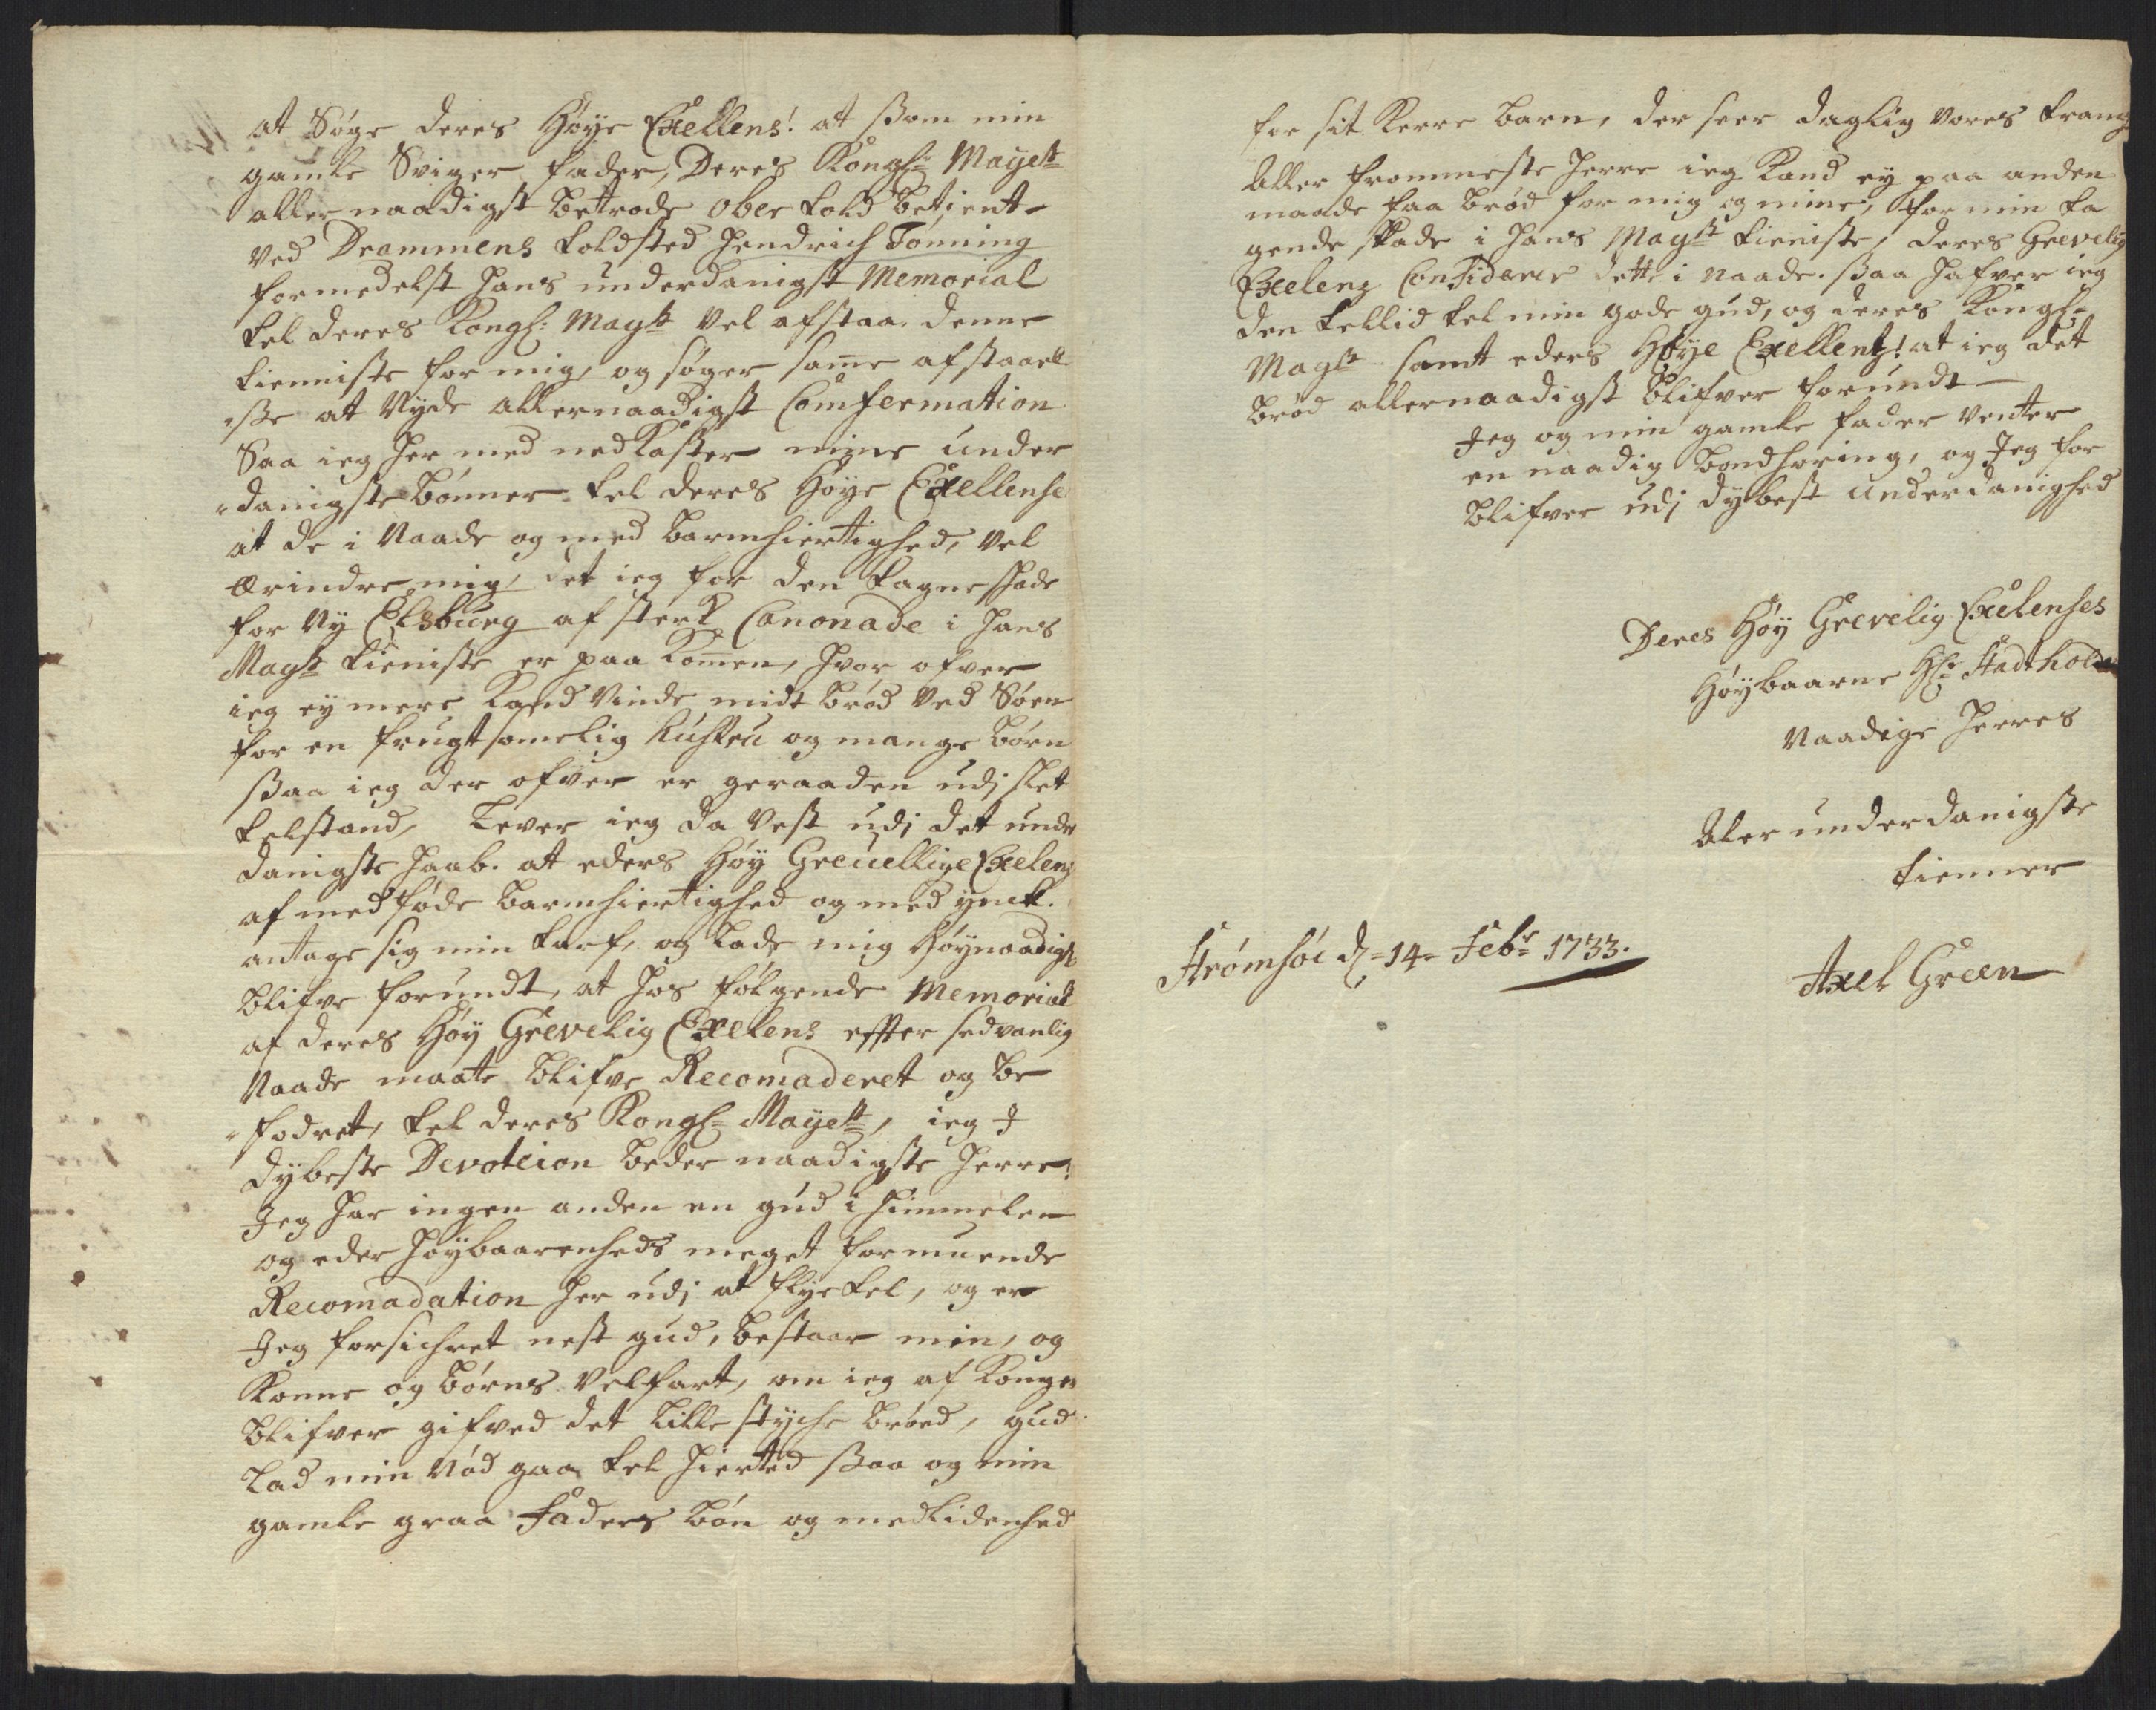 at Søge deres Høye Exellens! at ßom min
gamle Sviger fader, Deres Kongl: Mayestt
allernaadigst betrode ober told betient
ved Drammens toldsted Hendrich Tønning
formedelst hans underdanigst Memorial
tel deres Kongl: Maystt vel afstaa denne
tienniste for mig, og søger same afstaael
-ße at Nyde allernaadigst Comfermation
Saa ieg her med nedkaster mine under
-danigste bønner tel deres Høye Exellense
at de i Naade og med barmhiertighed, vel
erindre mig, det ieg for den tagne skade
for Ny Elsburg af sterk Canonade i hans
Mayst tieniste er paa komen, hvor ofver
ieg ey mere kand vinde midt brød ved Søen
for en frugtsomelig hustru og mange børn
ßaa ieg der ofver er geraaden udj slet
telstand, Lever ieg da vest udj det under
danigste haab. at eders Høy Greuellige Exelenz
af medføde barmhiertighed og med ynck.
antage sig min tarf, og lade mig Høynaadigst
blifve forundt, at hos følgende Memorial
af deres Høy Grevelig Exelens effter sedvanlig
Naade maate blifve Recomaderet og be
-fodret, tel deres Kongl: Mayestt, ieg I
dybeste Devoteion beder naadigste Herre!
Jeg har ingen anden en gud i himmelen
og eder høybaarenheds meget formuende
Recomadation her udj at flye tel, og er
Jeg forsichret nest gud, bestaar min, og
Konne og børns velfart, om ieg af Kongen
blifver gifved det lille styche brøed, gud
lad min Nød gaa tel hierted ßaa og min
gamle graa Faders bøn og medlidenhed
for sit Kerre barn, der seer daglig vores trang
Aller frommeste Herre ieg Kand ey paa anden
maade faa brød for mig og mine, for min ta
gende skade i hans Maystt tieniste, deres Grevelig
Exelenz Considerer dette i naade. ßaa hafver ieg
den tellid tel min gode gud, og deres Kongl:
Maystt samt eders Høye Exellentz! at ieg det
brød allernaadigst blifver forundt
Jeg og min gamle fader venter
en naadig bondhøring, og Jeg for
blifver udj dybest underdanighed
Deres Høy Grevelig Exelenses
Høybaarne Hr: Stadtholder
Naadige Herres
Aler underdanigste
tienner
Strømsøe d. 14. Febr 1733.
Axel Green